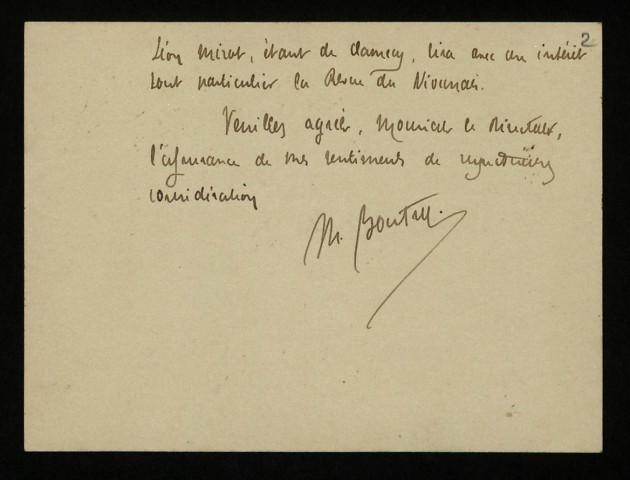 2
Léon Mirot, étant de Clamecy, lira avec un intérêt
tout particulier la Revue du Nivernais.
Veuillez agréer, Monsieur le Directeur,
l'assurance de mes sentiments de respectueuse
considération
M. Boutell.